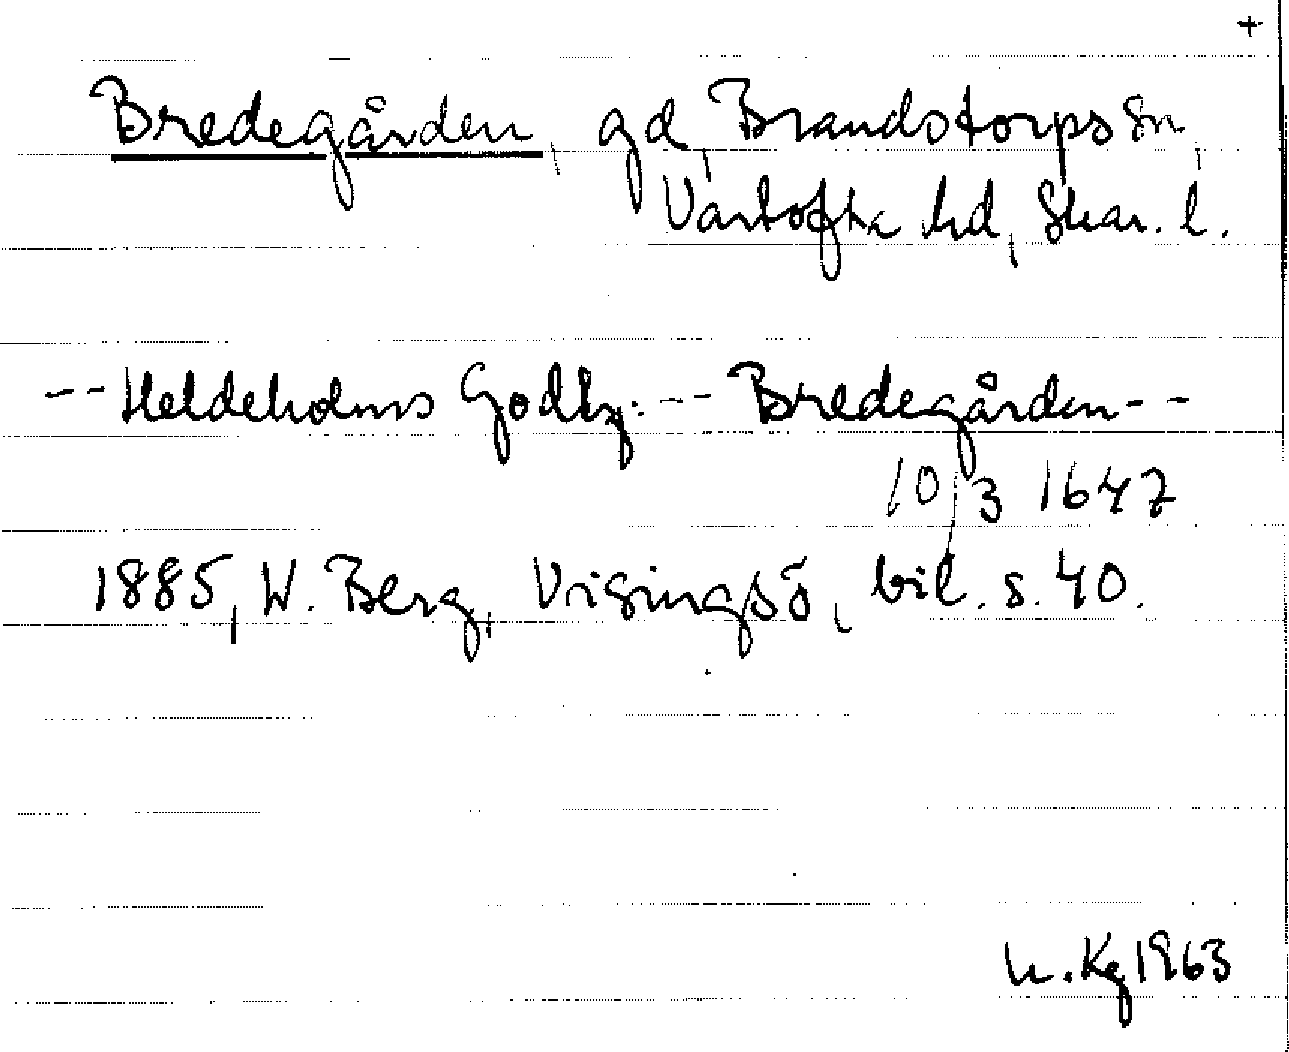 +
Bredegården, gd, Brandstorps sn,
Vartofta hd, Skar. l.
-- Heldeholms Godhz: -- Bredegården --
10/3 1647
1885, W. Berg, Visingsö, bil. s. 40.
h. Kg 1963